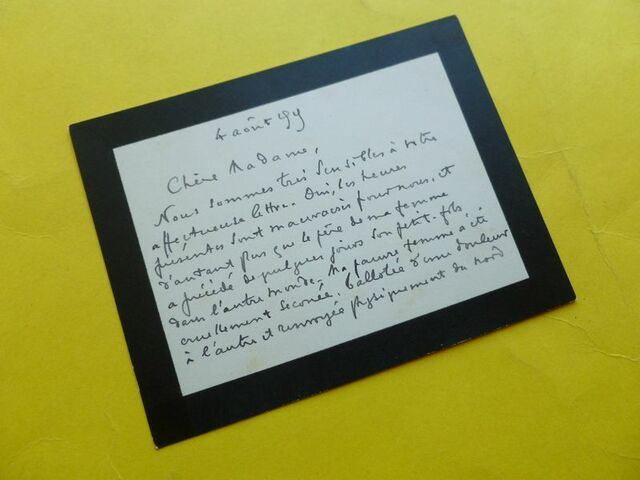 4 août 99
Chère Madame,
Nous sommes très sensibles à votre
affectueuse lettre. Oui, les heures
présentes sont mauvaises pour nous, et
d'autant plus que le père de ma femme
a précédé de quelques jours son petit-fils
dans l'autre monde, ma pauvre femme a été
cruellement secouée. ballotée d'une douleur
à l'autre et renvoyée physiquement du nord